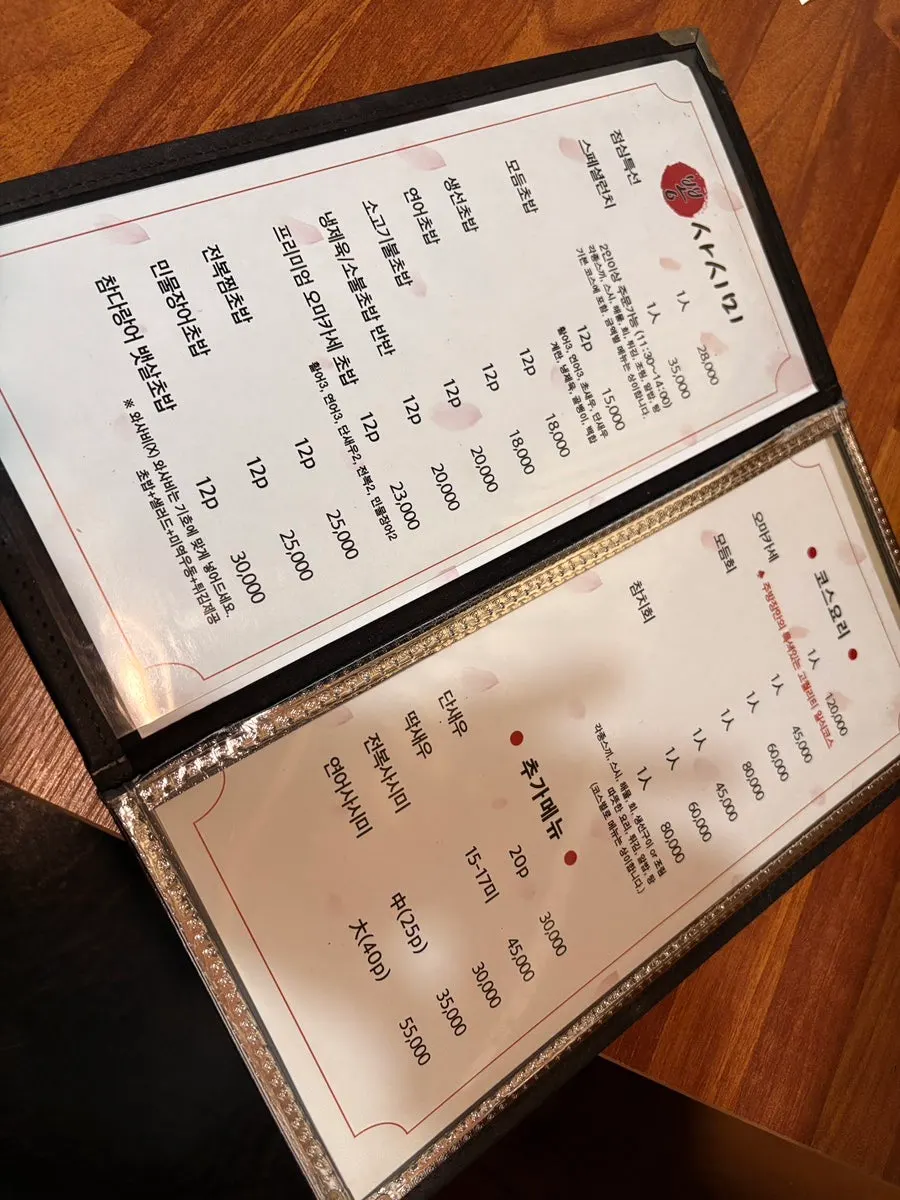 사시미
점심특선 1人 28,000
스페셜런치 1人 35,000
2인이상 주문가능 (11:30~14:00)
각종스끼, 스시, 해물, 회, 튀김, 조림, 알밥, 탕
기본 코스에 포함, 금액별 메뉴는 상이합니다.
모듬초밥 12p 15,000
활어3, 연어3, 초새우, 단새우
계란, 냉제육, 골뱅이, 백합
생선초밥 12p 18,000
연어초밥 12p 18,000
소고기불초밥 12p 20,000
냉제육/소불초밥 반반 12p 20,000
프리미엄 오마카세 초밥 12p 23,000
활어3, 연어3, 단새우2, 전복2, 민물장어2
전복찜초밥 12p 25,000
민물장어초밥 12p 25,000
참다랑어 뱃살초밥 12p 30,000
※ 와사비(X) 와사비는 기호에 맞게 넣어드세요.
초밥+샐러드+미역우동+튀김제공
● 코스요리 ●
오마카세 1人 120,000
◆ 주방장만의 특색있는 고퀄리티 일식코스
모듬회 1人 45,000
1人 60,000
1人 80,000
참치회 1人 45,000
1人 60,000
1人 80,000
각종스끼, 스시, 해물 회, 생선구이 or 조림
따뜻한 요리, 튀김, 알밥, 탕
(코스별로 메뉴는 상이합니다.)
● 추가메뉴 ●
단새우 20p 30,000
딱새우 15-17미 45,000
전복사시미 30,000
연어사시미 中(25p) 35,000
大(40p) 55,000